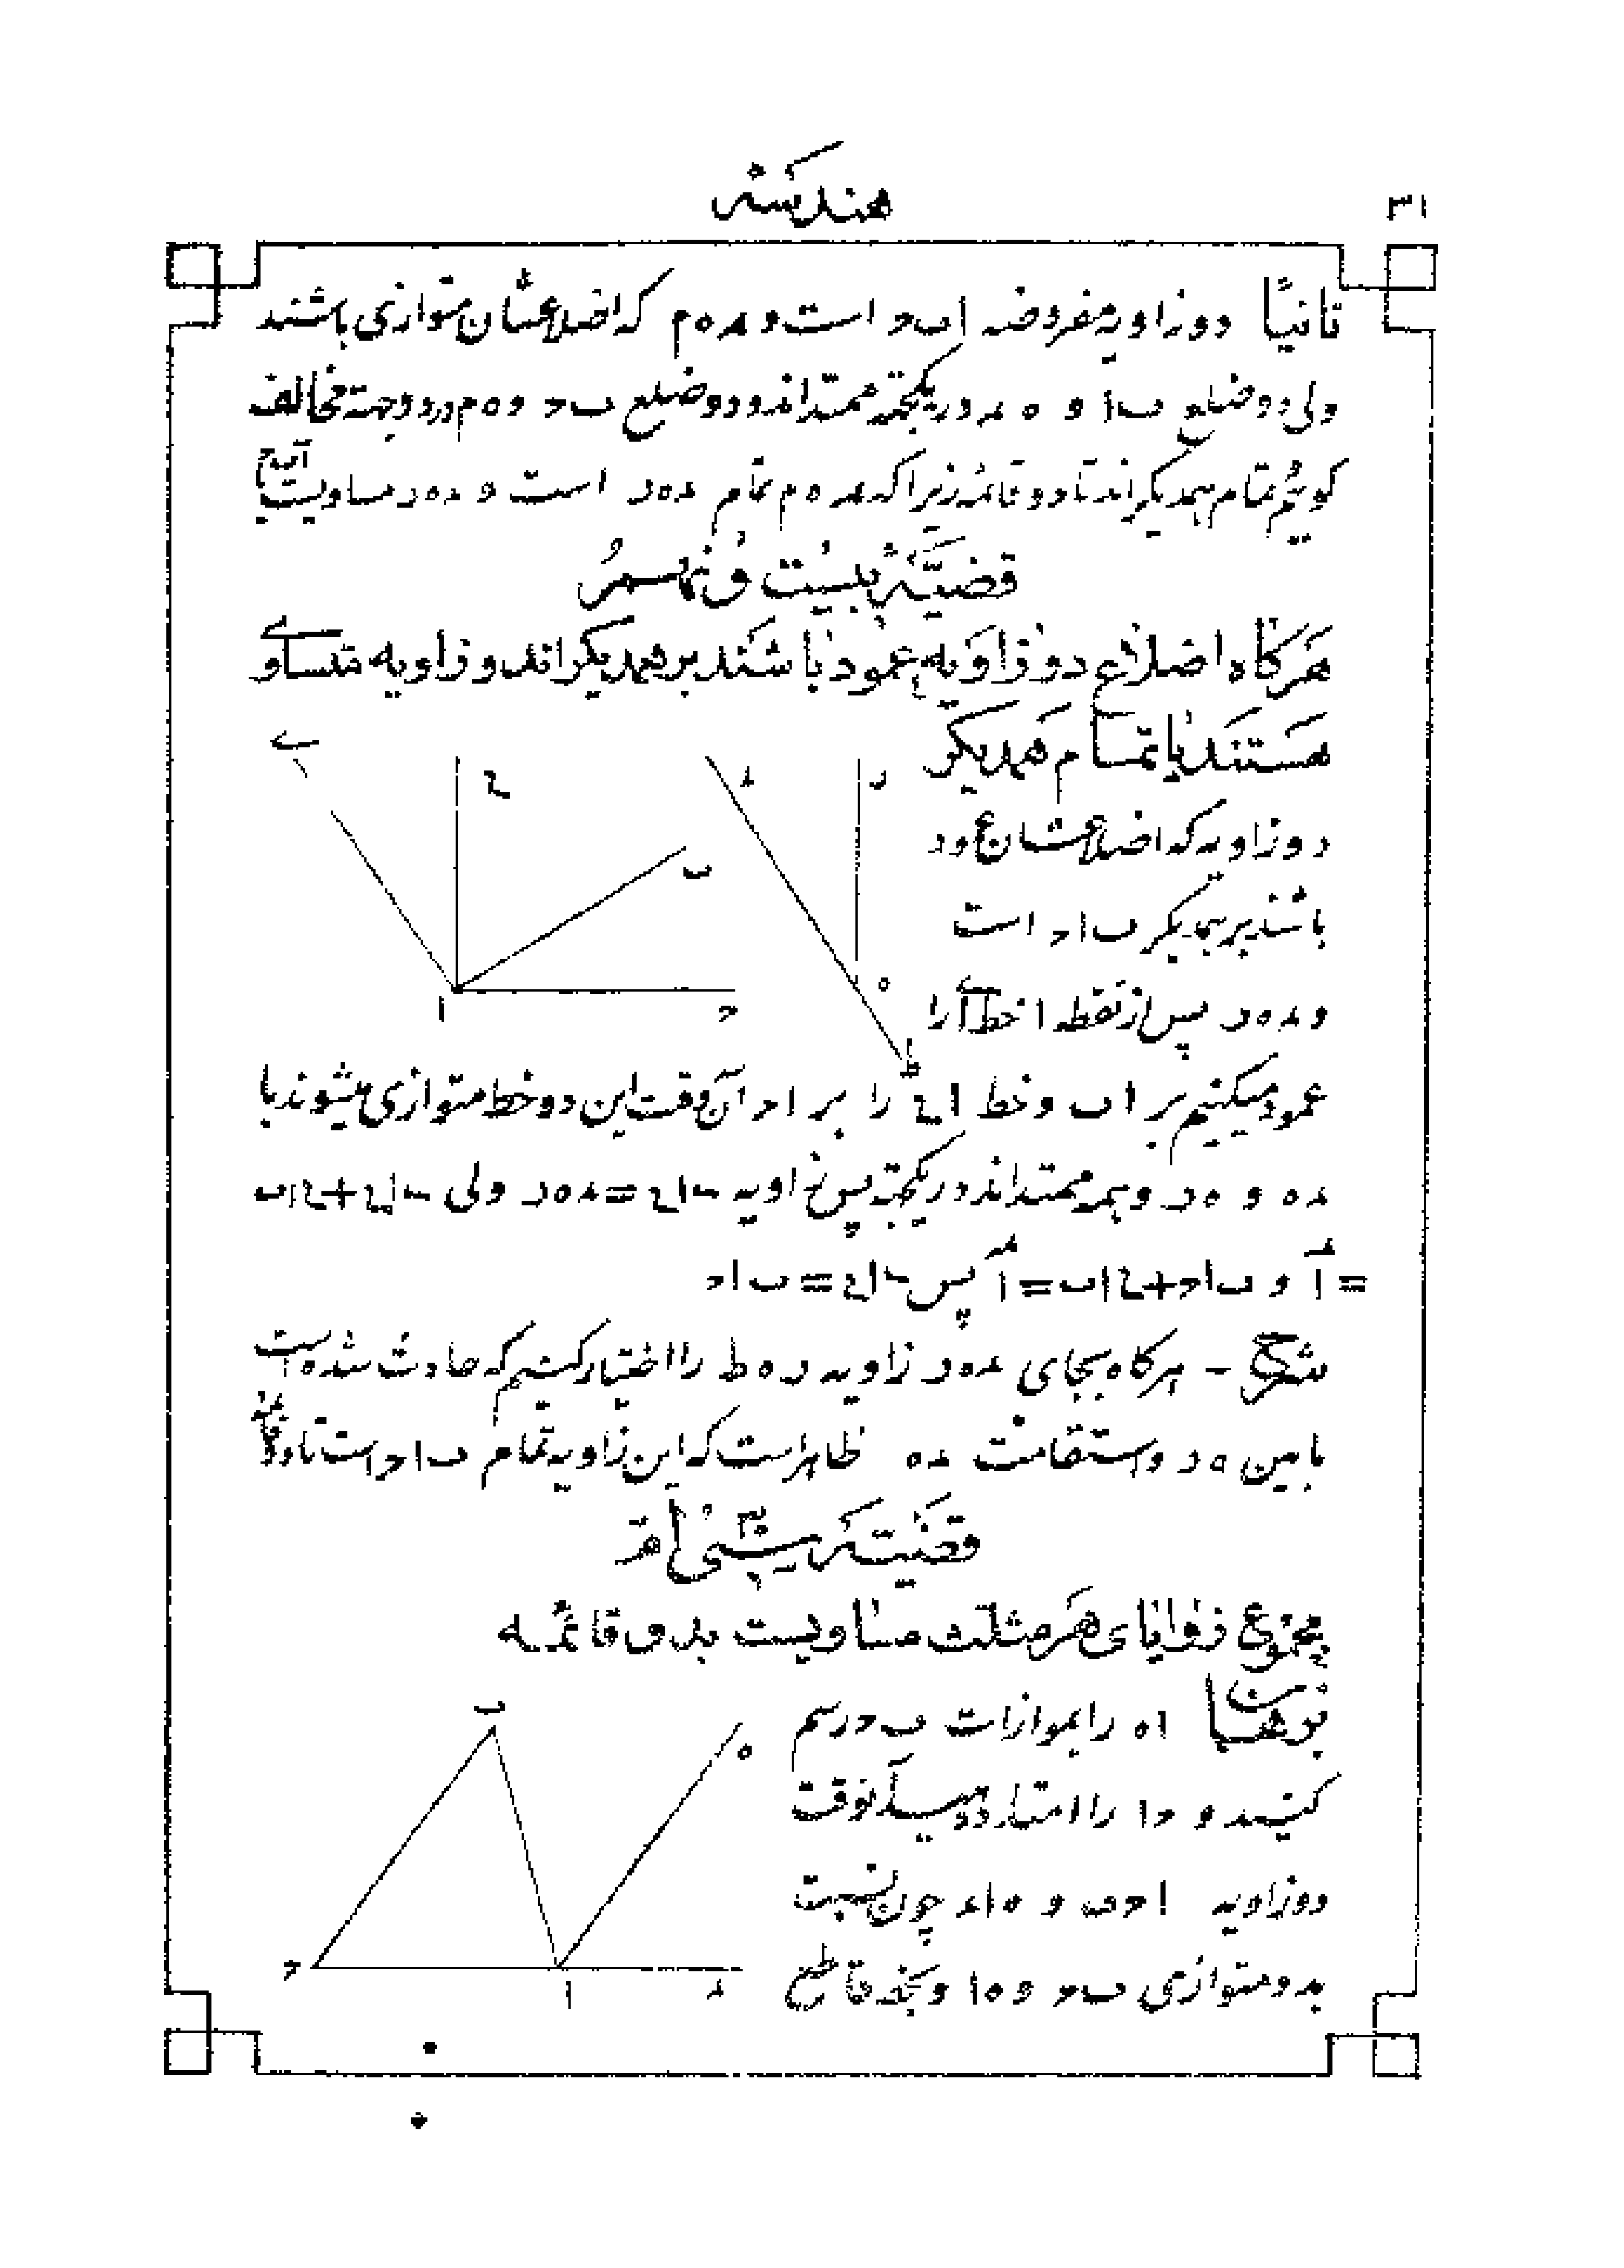 ۳۱
هندسه
ثانیاً دو زاویه مفروضه ا ب ح است و ء ه م که اضلاعشان متوازی باشند
ولی دو ضلع ب ا و ه ء در یکجهة ممتداند و دو ضلع ب ح و ه م در دو جهة مخالف
کوئیم تمام همدیکراند تا دو قائمه زیرا که ء ه م تمام ء ه ر است و ء ه ر مساویست با ا ب ح
قضیّهٔ بیست و نهم
هرکاه اضلاع دو زاویه عمود باشند بر همدیکراند و زاویه متساوے
هستند یا تمام همدیکر
دو زاویه که اضلاعشان عمود
باشند بر همدیکر ب ا ح است
و ء ه ر پس از نقطه ا خط ا ے را
عمود میکنیم بر ا ب و خط ا ح را بر ا ح آن وقت این دو خط متوازی میشوند با
ء ه و ه ر و همه ممتداند در یکجهة پس زاویه ے ا ح = ء ه ر ولی ے ا ح + ح ا ب
= ا و ب ا ح + ح ا ب = ا پس ے ا ح = ب ا ح
شرح - هرکاه بجای ء ه ر زاویه ر ه ط را اختیار کنیم که حادث شده است
ما بین ه ر و استقامت ء ه ظاهر است که این زاویه تمام ب ا ح است تا دو قائمه
قضیّهٔ سی ام
مجموع زوایای هر مثلث مساویست بدو قائمه
برهان ا ه را بموازات ب ح رسم
کنید و ح ا را امتداد دهید آنوقت
دو زاویه ا ح ب و ه ا ء چون نسبت
بدو متوازی ب ح و ه ا و بخط قاطع
ے
ح
ب
ا
ح
ء
ر
ه
ط
ب
ه
ح
ا
ء